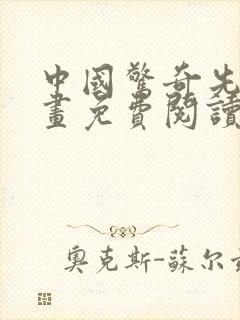 中國驚奇先
畫免費閱讀
奧克斯-蘇尔